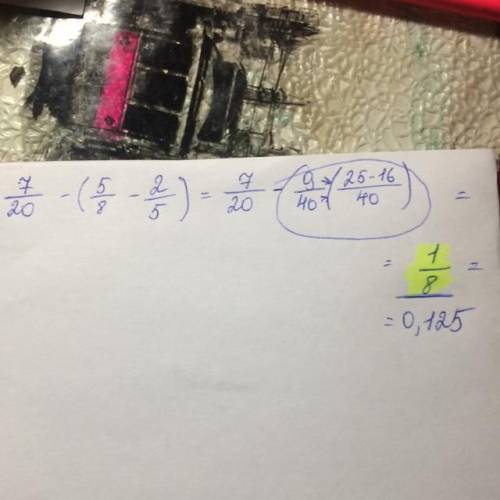 7/20 - (5/8 - 2/5) = 7/20 - 9/40 → (25-16/40) =
= 1/8 =
= 0,125